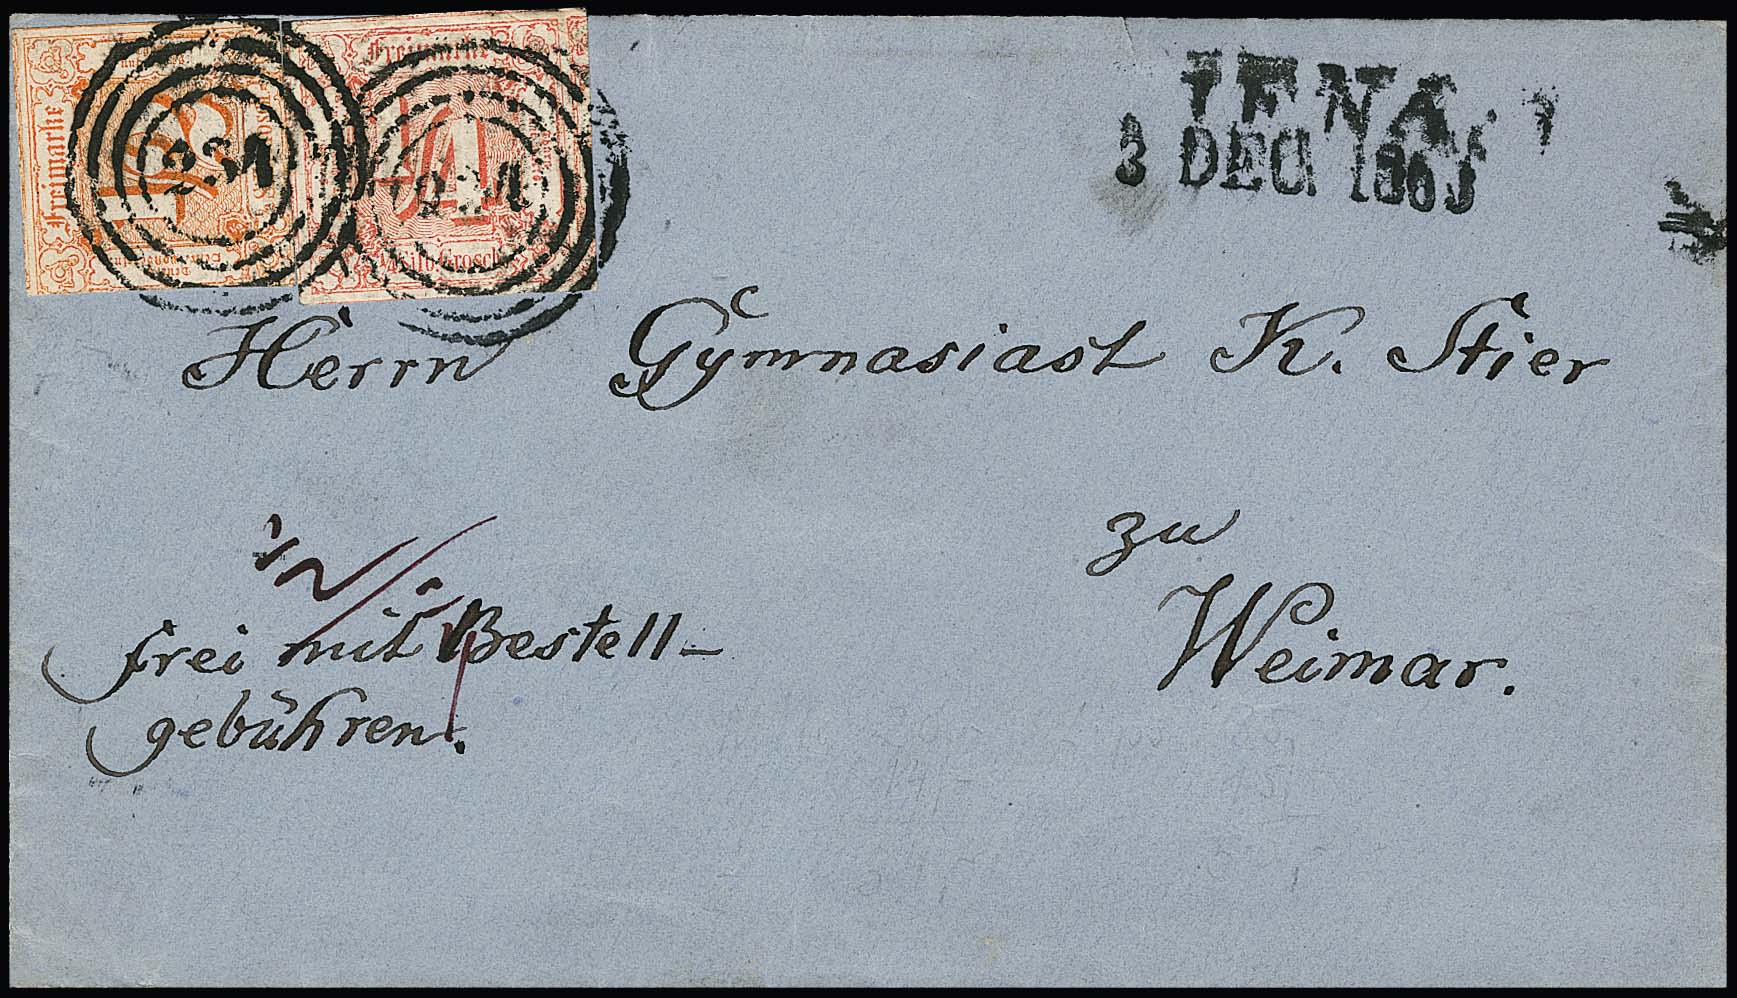 Freimarke
1/2
231
Freimarke
1/4
231
1/4 Silb. Grosch.
JENA
3 DEC 1863
Herrn Gymnasiast K. Stier
zu
Weimar.
1/2 / 1/4
frei mit Bestell-
gebühren.